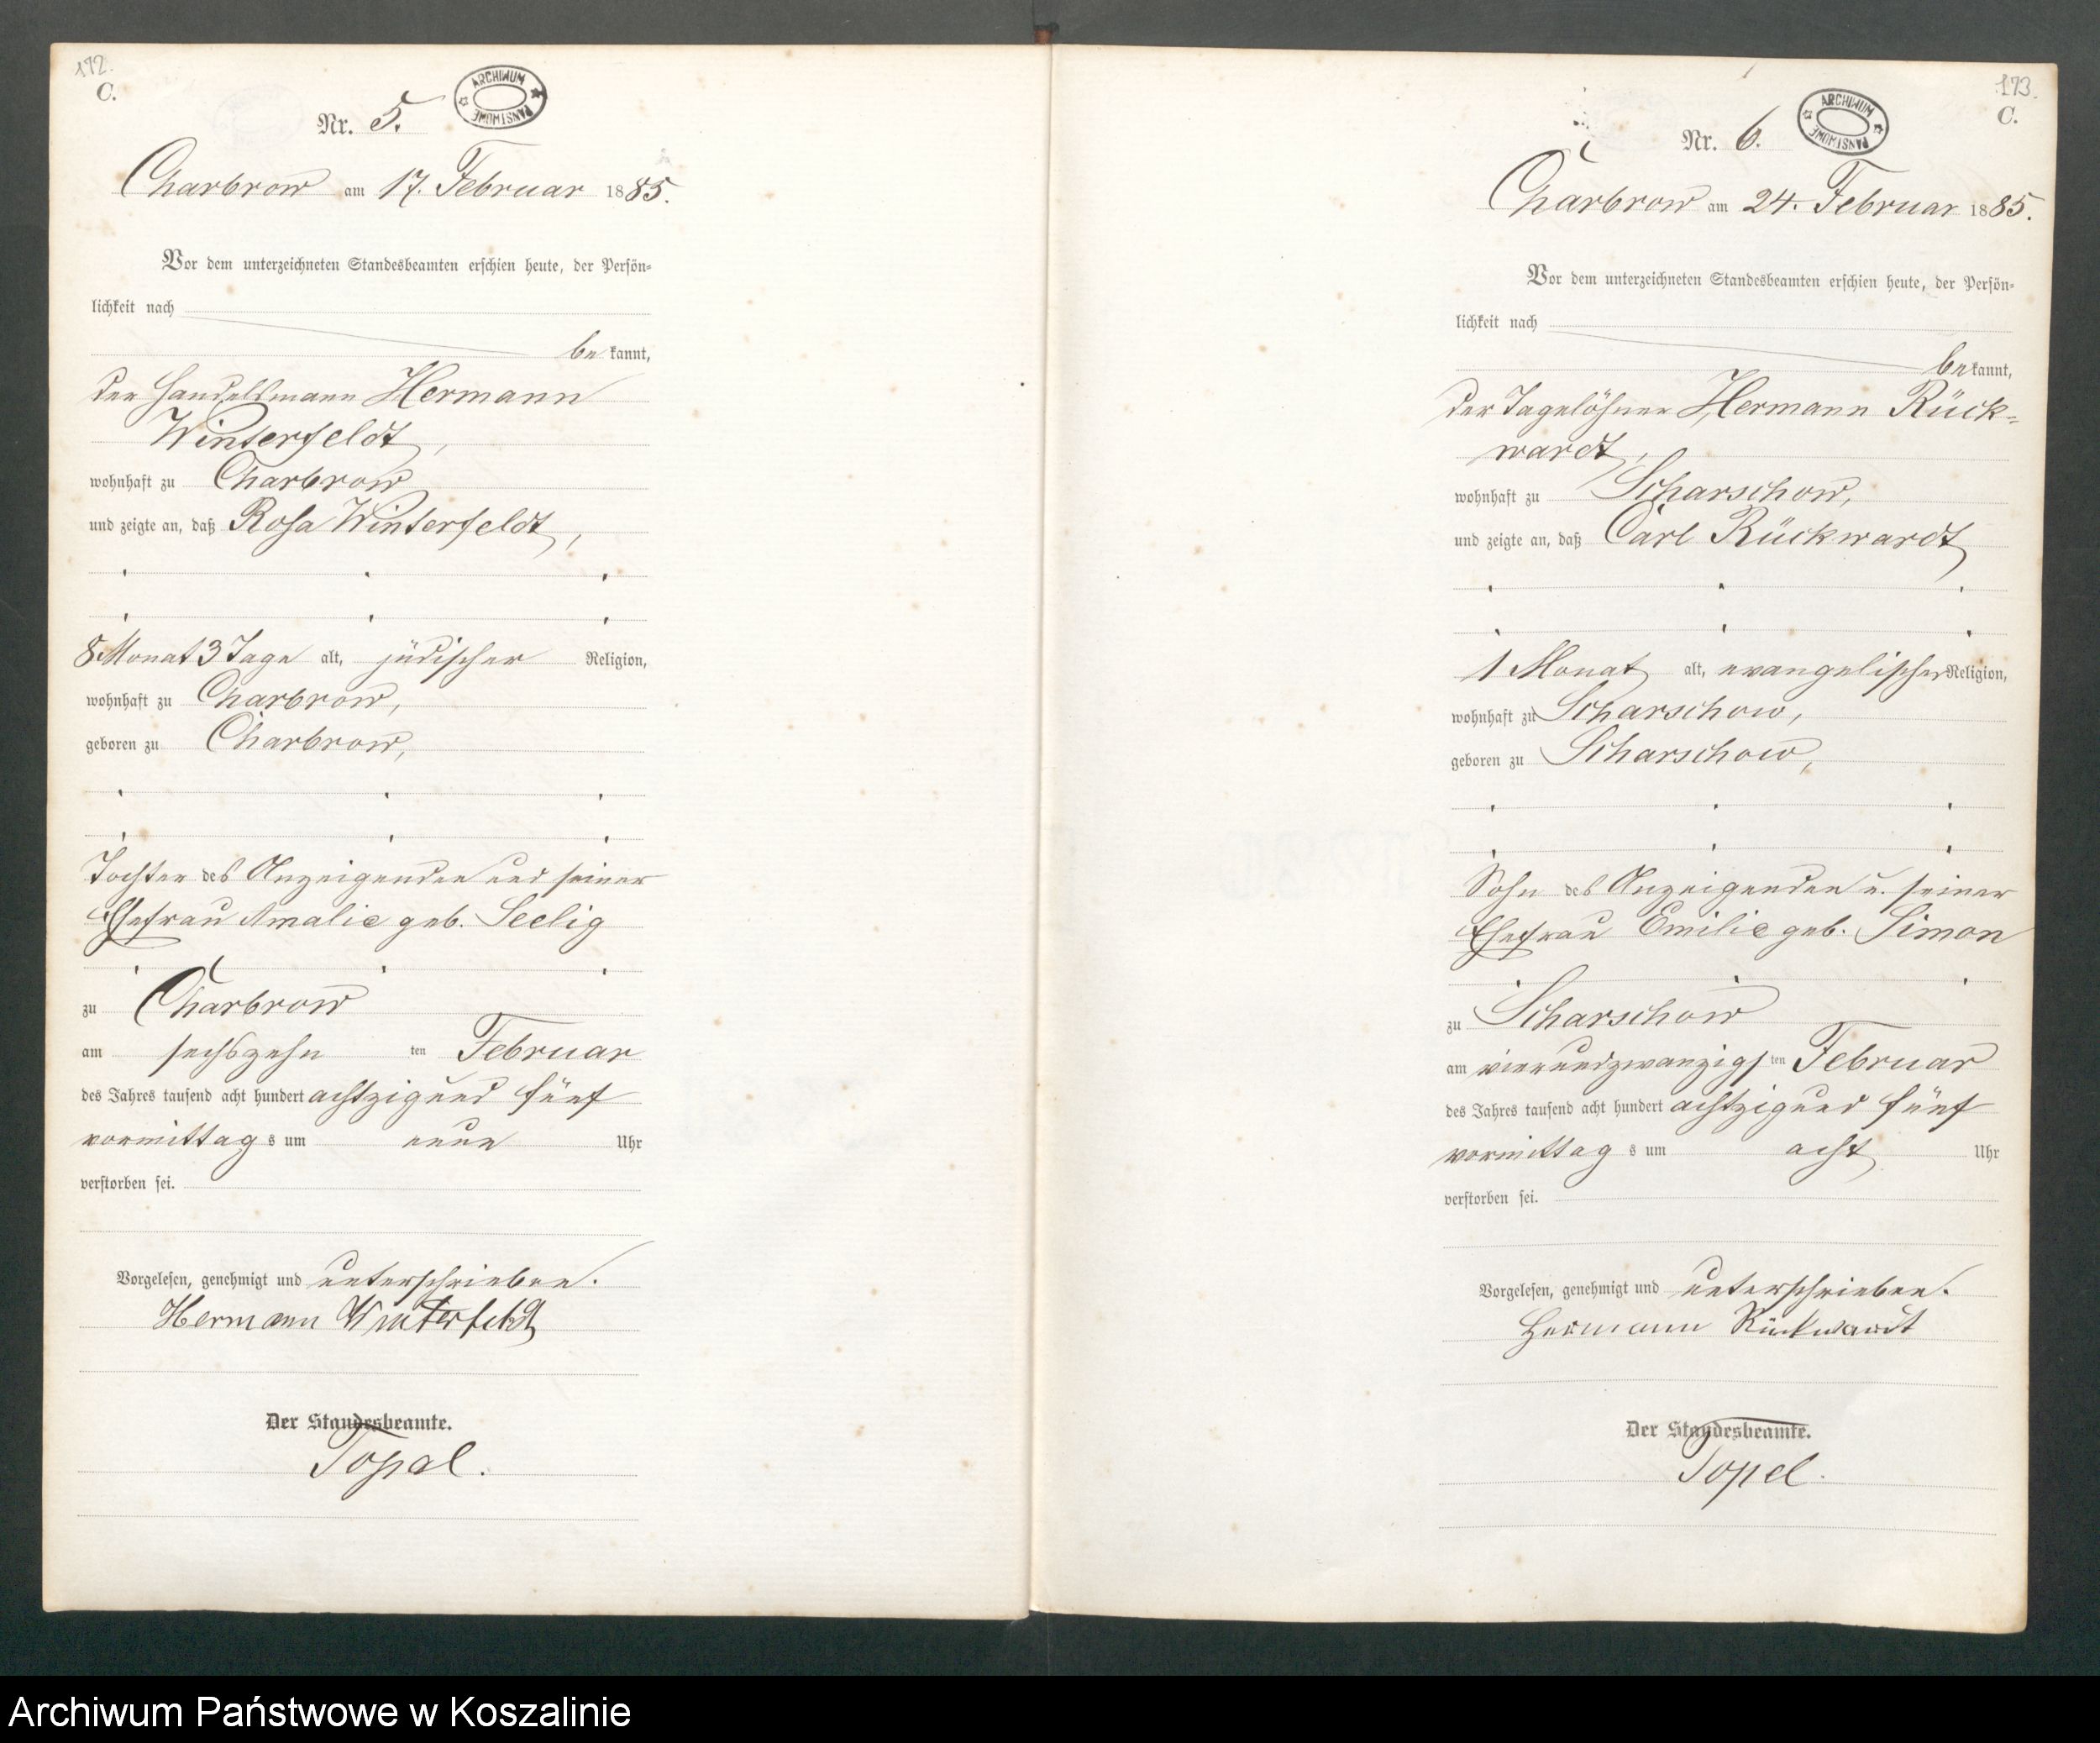 172.
C.
ARCHIWUM PAŃSTWOWE
Nr. 5.
Charbrow am 17. Februar 1885.
Vor dem unterzeichneten Standesbeamten erschien heute, der Persön-
lichkeit nach
bekannt,
der Handelsmann Hermann
Winterfeldt,
wohnhaft zu Charbrow
und zeigte an, daß Rosa Winterfeldt,
8 Monat 3 Tage alt, jüdischer Religion,
wohnhaft zu Charbrow,
geboren zu Charbrow,
Tochter des Anzeigenden und seiner
Ehefrau Amalie geb. Seelig
zu Charbrow
am sechszehn ten Februar
des Jahres tausend acht hundert achtzig und fünf
vormittags um neun Uhr
verstorben sei.
Vorgelesen, genehmigt und unterschrieben.
Hermann Winterfeldt
Der Standesbeamte.
Topel.
173.
C.
ARCHIWUM PAŃSTWOWE
Nr. 6.
Charbrow am 24. Februar 1885.
Vor dem unterzeichneten Standesbeamten erschien heute, der Persön-
lichkeit nach
bekannt,
der Tagelöhner Hermann Rück-
wardt,
wohnhaft zu Scharschow,
und zeigte an, daß Carl Rückwardt
1 Monat alt, evangelischer Religion,
wohnhaft zu Scharschow,
geboren zu Scharschow,
Sohn des Anzeigenden u. seiner
Ehefrau Emilie geb. Simon
zu Scharschow
am vierundzwanzigsten Februar
des Jahres tausend acht hundert achtzig und fünf
vormittags um acht Uhr
verstorben sei.
Vorgelesen, genehmigt und unterschrieben.
Hermann Rückwardt
Der Standesbeamte.
Topel.
Archiwum Państwowe w Koszalinie